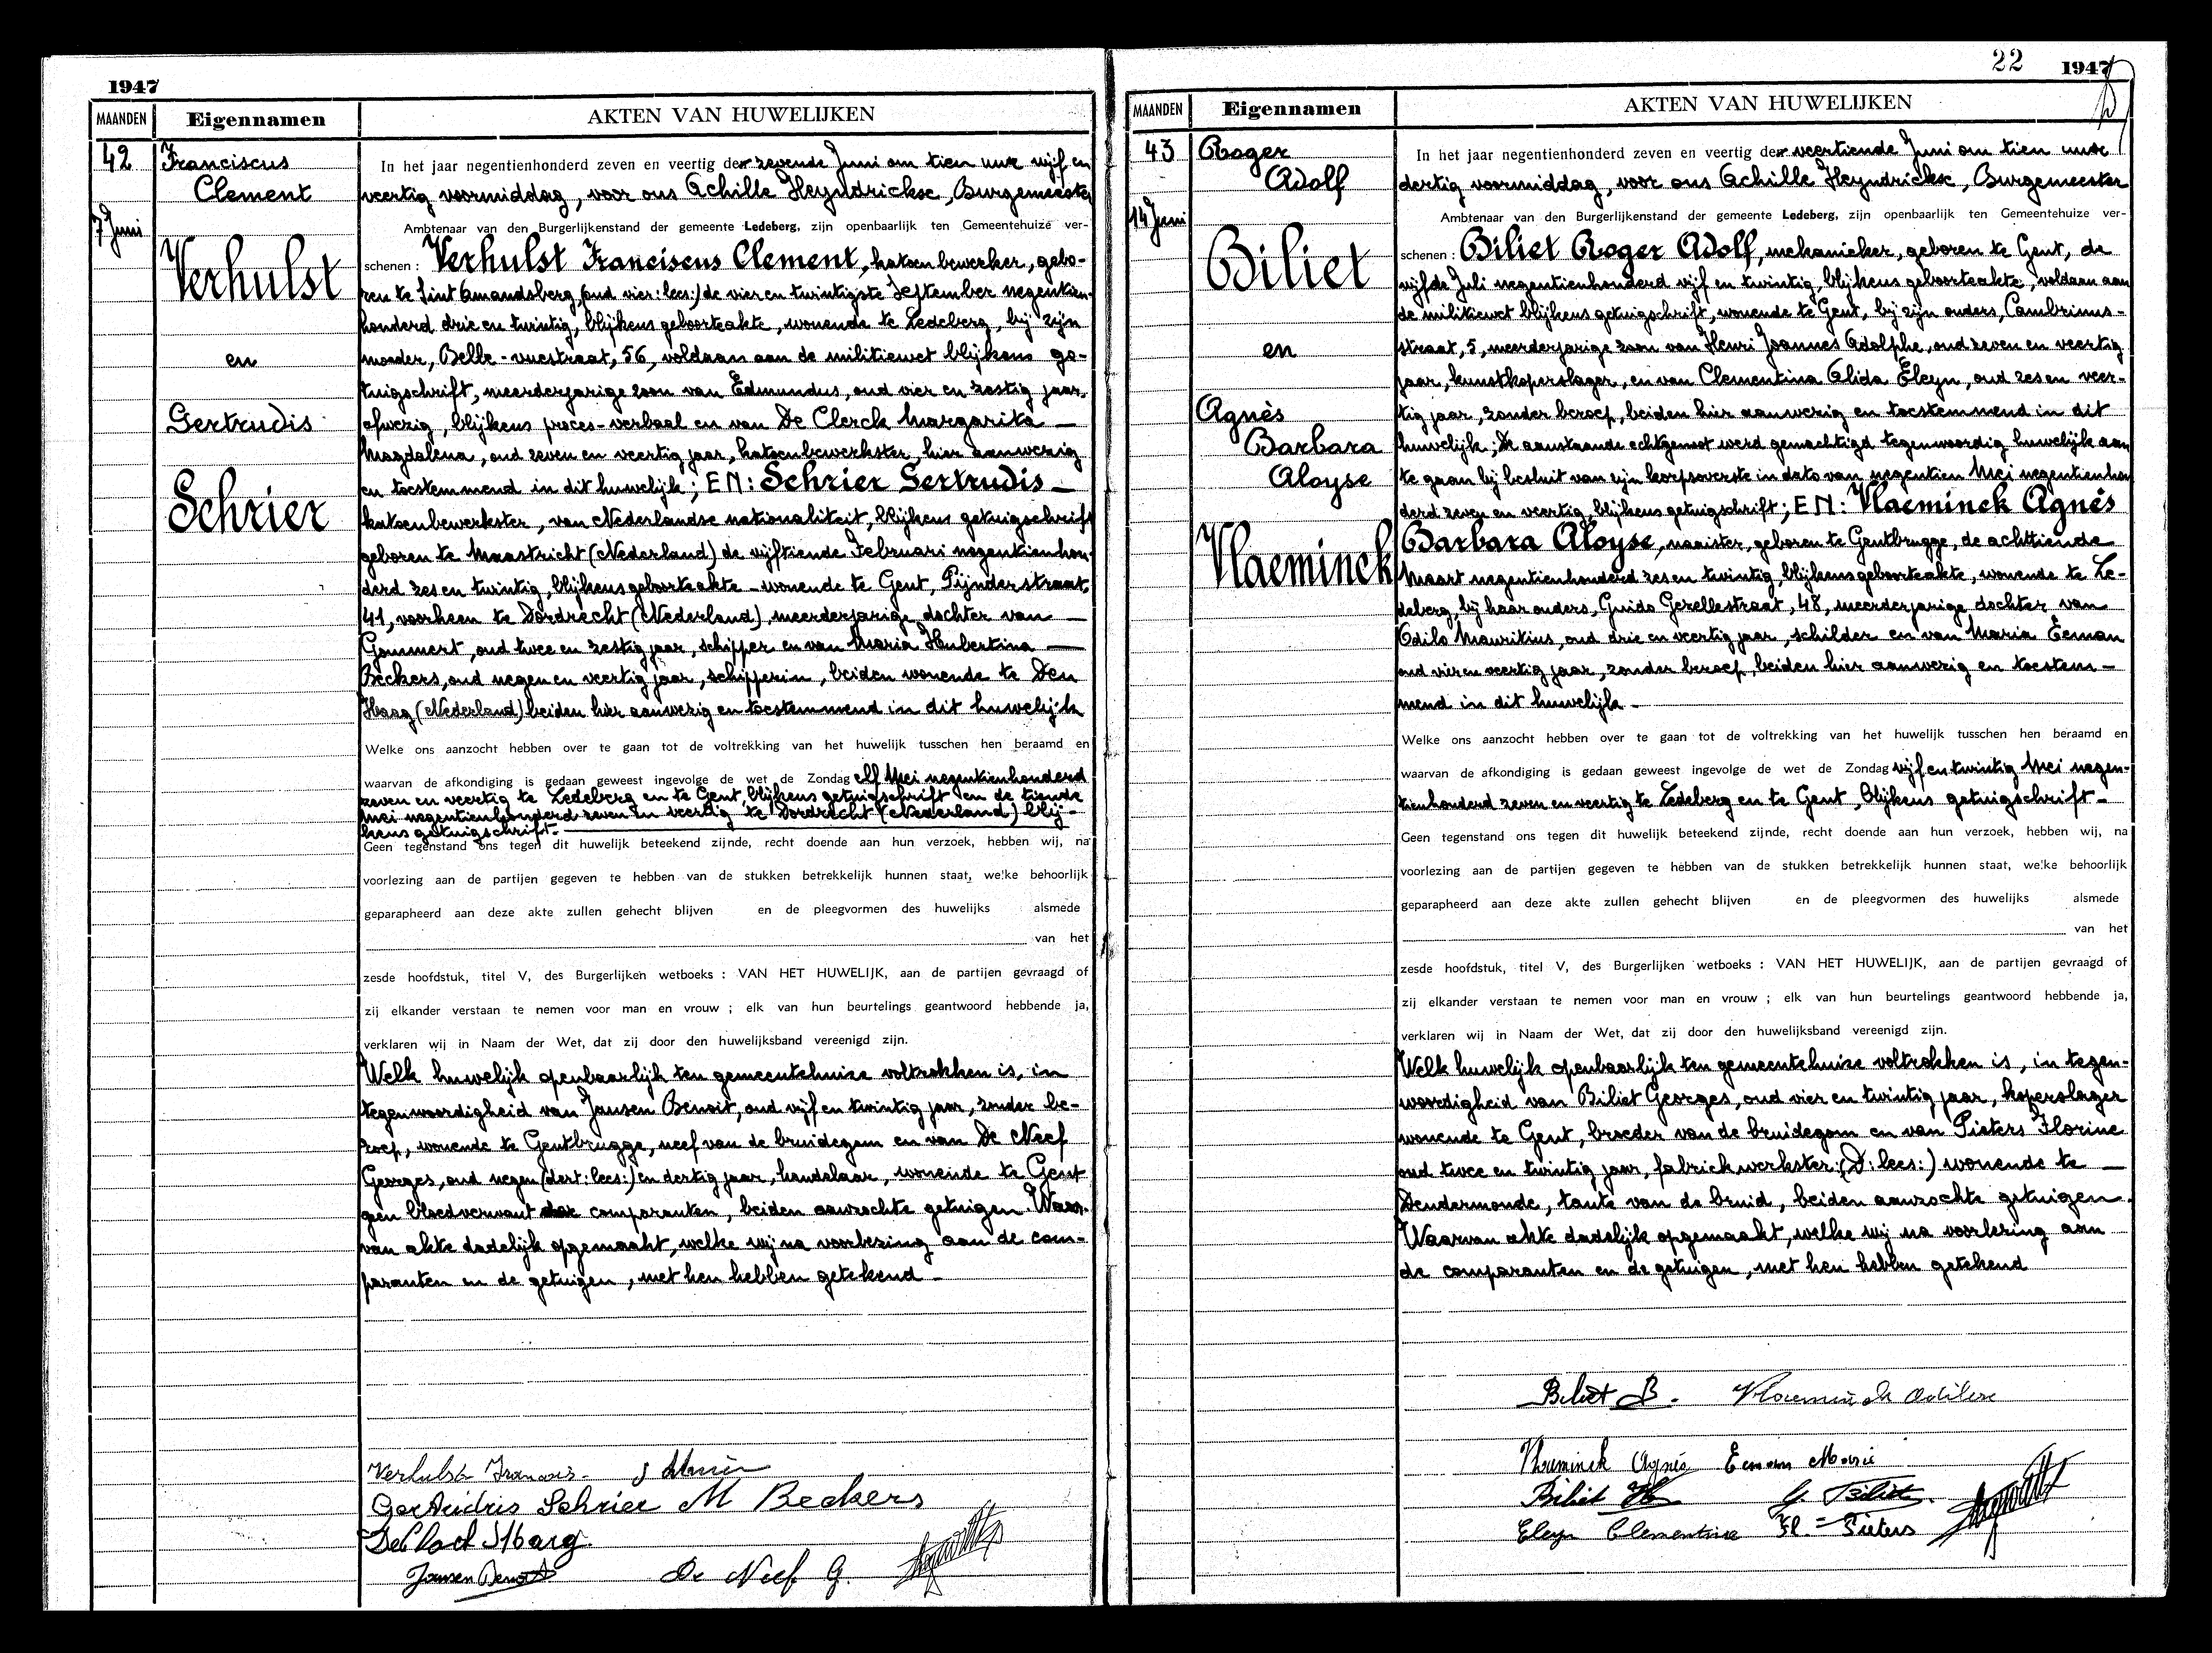 1947
MAANDEN Eigennamen AKTEN VAN HUWELIJKEN
42
7 Juni
Franciscus
Clement
Verhulst
en
Gertrudis
Schrier
In het jaar negentienhonderd zeven en veertig der zevende Juni om tien ure vijf en
veertig voormiddag, voor ons Achille Heyndrickx, Burgemeester
Ambtenaar van den Burgerlijkenstand der gemeente Ledeberg, zijn openbaarlijk ten Gemeentehuize ver-
schenen : Verhulst Franciscus Clement, katoenbewerker, gebo-
ren te Sint Amandsberg, (oud vier: lees:) de vier en twintigste September negentien-
honderd drie en twintig, blijkens geboorteakte, wonende te Ledeberg, bij zijn
moeder, Belle-vuestraat, 56, voldaan aan de militiewet blijkens ge-
tuigschrift, meerderjarige zoon van Edmundus, oud vier en zestig jaar,
afwezig, blijkens proces-verbaal en van De Clerck Margarita
Magdalena, oud zeven en veertig jaar, katoenbewerkster, hier aanwezig
en toestemmend in dit huwelijk; EN: Schrier Gertrudis
katoenbewerkster, van Nederlandse nationaliteit, blijkens getuigschrift
geboren te Maastricht (Nederland) de vijftiende Februari negentienhon-
derd zes en twintig, blijkens geboorteakte - wonende te Gent, Pijnderstraat,
41, voorheen te Dordrecht (Nederland), meerderjarige dochter van
Gommert, oud twee en zestig jaar, schipper en van Maria Hubertina
Beckers, oud negen en veertig jaar, schipperin, beiden wonende te Den
Haag (Nederland) beiden hier aanwezig en toestemmend in dit huwelijk
Welke ons aanzocht hebben over te gaan tot de voltrekking van het huwelijk tusschen hen beraamd en
waarvan de afkondiging is gedaan geweest ingevolge de wet de Zondag elf Mei negentienhonderd
zeven en veertig te Ledeberg en te Gent, blijkens getuigschrift en de tiende
Mei negentienhonderd zeven en veertig te Dordrecht (Nederland) blij-
kens getuigschrift.
Geen tegenstand ons tegen dit huwelijk beteekend zijnde, recht doende aan hun verzoek, hebben wij, na
voorlezing aan de partijen gegeven te hebben van de stukken betrekkelijk hunnen staat, welke behoorlijk
geparapheerd aan deze akte zullen gehecht blijven en de pleegvormen des huwelijks alsmede
van het
zesde hoofdstuk, titel V, des Burgerlijken wetboeks : VAN HET HUWELIJK, aan de partijen gevraagd of
zij elkander verstaan te nemen voor man en vrouw ; elk van hun beurtelings geantwoord hebbende ja,
verklaren wij in Naam der Wet, dat zij door den huwelijksband vereenigd zijn.
Welk huwelijk openbaarlijk ten gemeentehuize voltrokken is, in
tegenwoordigheid van Jansen Benoit, oud vijf en twintig jaar, zonder be-
roep, wonende te Gentbrugge, neef van de bruidegom en van De Neef
Georges, oud negen (dert: lees:) en dertig jaar, handelaar, wonende te Gent
geen bloedverwant der comparanten, beiden aanzochte getuigen. Waar-
van akte dadelijk opgemaakt, welke wij na voorlezing aan de com-
paranten en de getuigen, met hen hebben getekend -
Verhulst Francois - J Schrier
Gertrudis Schrier M Beckers
De Clerck Marg.
Jansen Benoit De Neef G.
22 1947
MAANDEN Eigennamen AKTEN VAN HUWELIJKEN
43
14 Juni
Roger
Adolf
Biliet
en
Agnès
Barbara
Aloyse
Vlaeminck
In het jaar negentienhonderd zeven en veertig der veertiende Juni om tien ure
dertig voormiddag, voor ons Achille Heyndrickx, Burgemeester
Ambtenaar van den Burgerlijkenstand der gemeente Ledeberg, zijn openbaarlijk ten Gemeentehuize ver-
schenen : Biliet Roger Adolf, mekanieker, geboren te Gent, de
vijfde Juli negentienhonderd vijf en twintig, blijkens geboorteakte, voldaan aan
de militiewet blijkens getuigschrift, wonende te Gent, bij zijn ouders, Cambrinus-
straat, 5, meerderjarige zoon van Henri Joannes Adolphe, oud zeven en veertig
jaar, kunstkoperslager, en van Clementina Alida Eleyn, oud zes en veer-
tig jaar, zonder beroep, beiden hier aanwezig en toestemmend in dit
huwelijk; De aanstaande echtgenoot werd gemachtigd tegenwoordig huwelijk aan
te gaan bij besluit van zijn korpsoverste in dato van negentien Mei negentienhon
derd zeven en veertig, blijkens getuigschrift; EN: Vlaeminck Agnès
Barbara Aloyse, naaister, geboren te Gentbrugge, de achttiende
Maart negentienhonderd zes en twintig, blijkens geboorteakte, wonende te Le-
deberg, bij haar ouders, Guido Gezellestraat, 48, meerderjarige dochter van
Odilo Mauritius, oud drie en veertig jaar, schilder en van Maria Eeman
oud vier en veertig jaar, zonder beroep, beiden hier aanwezig en toestem-
mend in dit huwelijk -
Welke ons aanzocht hebben over te gaan tot de voltrekking van het huwelijk tusschen hen beraamd en
waarvan de afkondiging is gedaan geweest ingevolge de wet de Zondag vijf en twintig Mei negen-
tienhonderd zeven en veertig te Ledeberg en te Gent, blijkens getuigschrift -
Geen tegenstand ons tegen dit huwelijk beteekend zijnde, recht doende aan hun verzoek, hebben wij, na
voorlezing aan de partijen gegeven te hebben van de stukken betrekkelijk hunnen staat, welke behoorlijk
geparapheerd aan deze akte zullen gehecht blijven en de pleegvormen des huwelijks alsmede
van het
zesde hoofdstuk, titel V, des Burgerlijken wetboeks : VAN HET HUWELIJK, aan de partijen gevraagd of
zij elkander verstaan te nemen voor man en vrouw ; elk van hun beurtelings geantwoord hebbende ja,
verklaren wij in Naam der Wet, dat zij door den huwelijksband vereenigd zijn.
Welk huwelijk openbaarlijk ten gemeentehuize voltrokken is, in tegen-
woordigheid van Biliet Georges, oud vier en twintig jaar, koperslager
wonende te Gent, broeder van de bruidegom en van Pieters Florine
oud twee en twintig jaar, fabriekwerkster (D: lees:) wonende te
Dendermonde, tante van de bruid, beiden aanzochte getuigen.
Waarvan akte dadelijk opgemaakt, welke wij na voorlezing aan
de comparanten en de getuigen, met hen hebben getekend
Biliet R. Vlaeminck Odilon
Vlaeminck Agnés Eeman Marie
Biliet G. Biliet
Eleyn Clementine Fl. Pieters